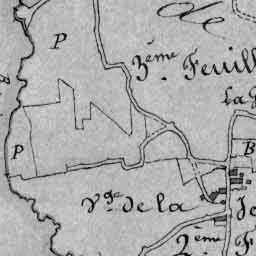 de
P
3.ème Feuill
la
P
B
V.ge de la
2.ème F